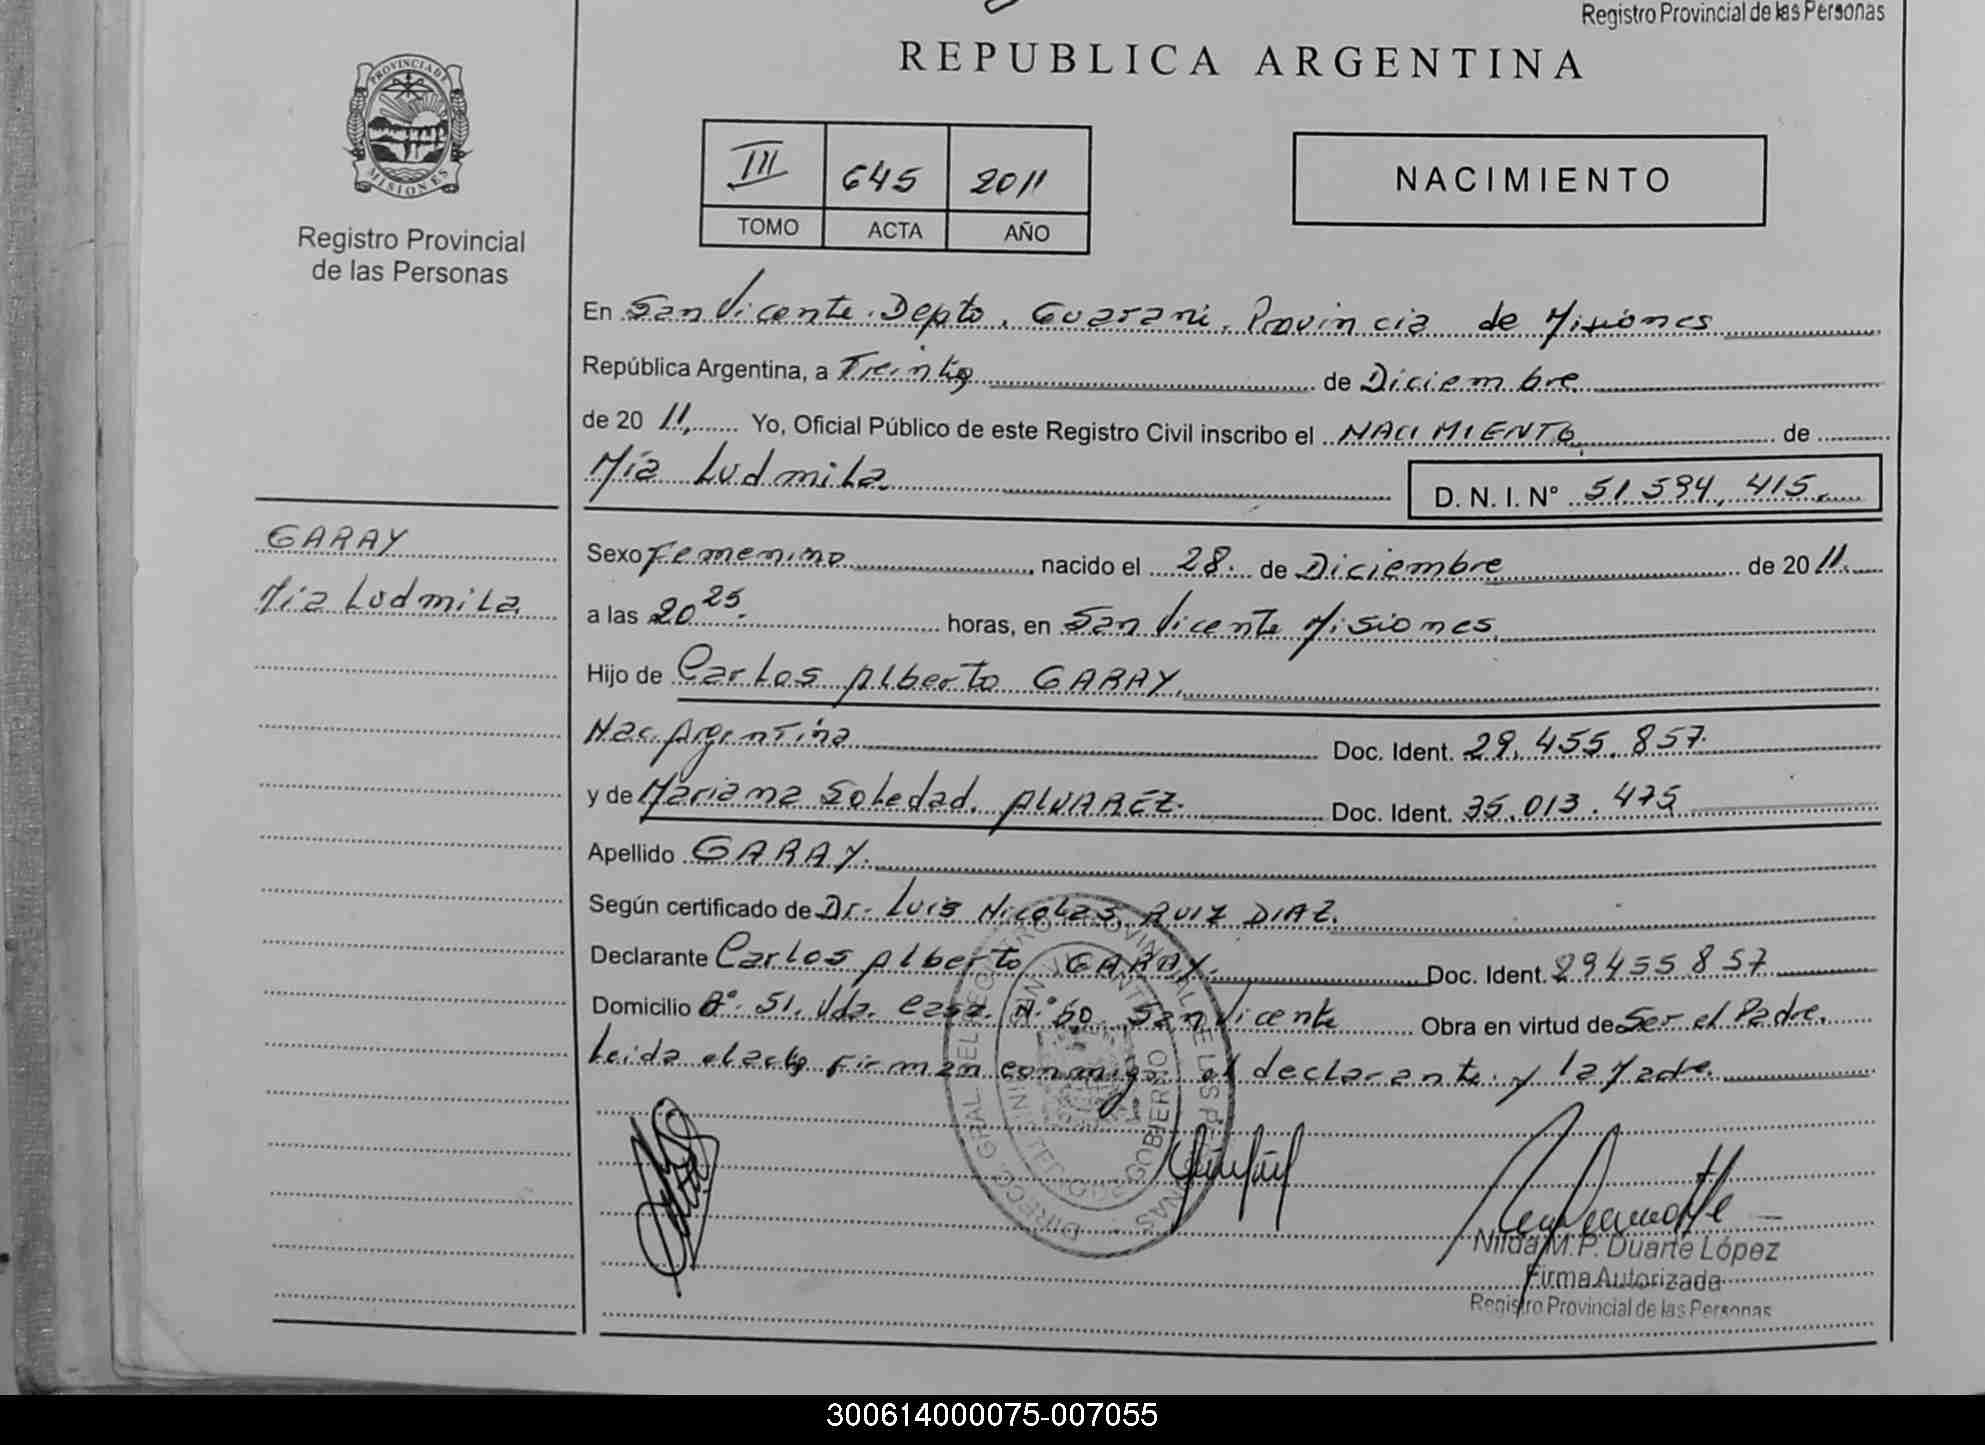 Registro Provincial de las Personas
REPUBLICA ARGENTINA
PROVINCIA DE MISIONES
Registro Provincial
de las Personas
III 645 2011
TOMO ACTA AÑO
NACIMIENTO
En San Vicente. Depto. Guarani. Provincia de Misiones
República Argentina, a Treinta de Diciembre
de 20 11, Yo, Oficial Público de este Registro Civil inscribo el NACIMIENTO de
Mía Ludmila D. N. I. N° 51.594.415.
GARAY
Mia Ludmila
Sexo Femenino nacido el 28. de Diciembre de 20 11.
a las 20 25. horas, en San Vicente Misiones
Hijo de Carlos Alberto GARAY.
Nac. Argentina Doc. Ident. 29.455.857.
y de Mariana Soledad. ALVAREZ. Doc. Ident. 35.013.475
Apellido GARAY.
Según certificado de Dr. Luis Nicolas RUIZ DIAZ.
Declarante Carlos Alberto GARAY. Doc. Ident. 29455857
Domicilio B°. 51. Vda. Casa. N.° 60 San Vicente Obra en virtud de Ser el Padre.
Leida el acta firman conmigo el declarante y la Madre.
Nilda M.P. Duarte López
Firma Autorizada
Registro Provincial de las Personas
300614000075-007055